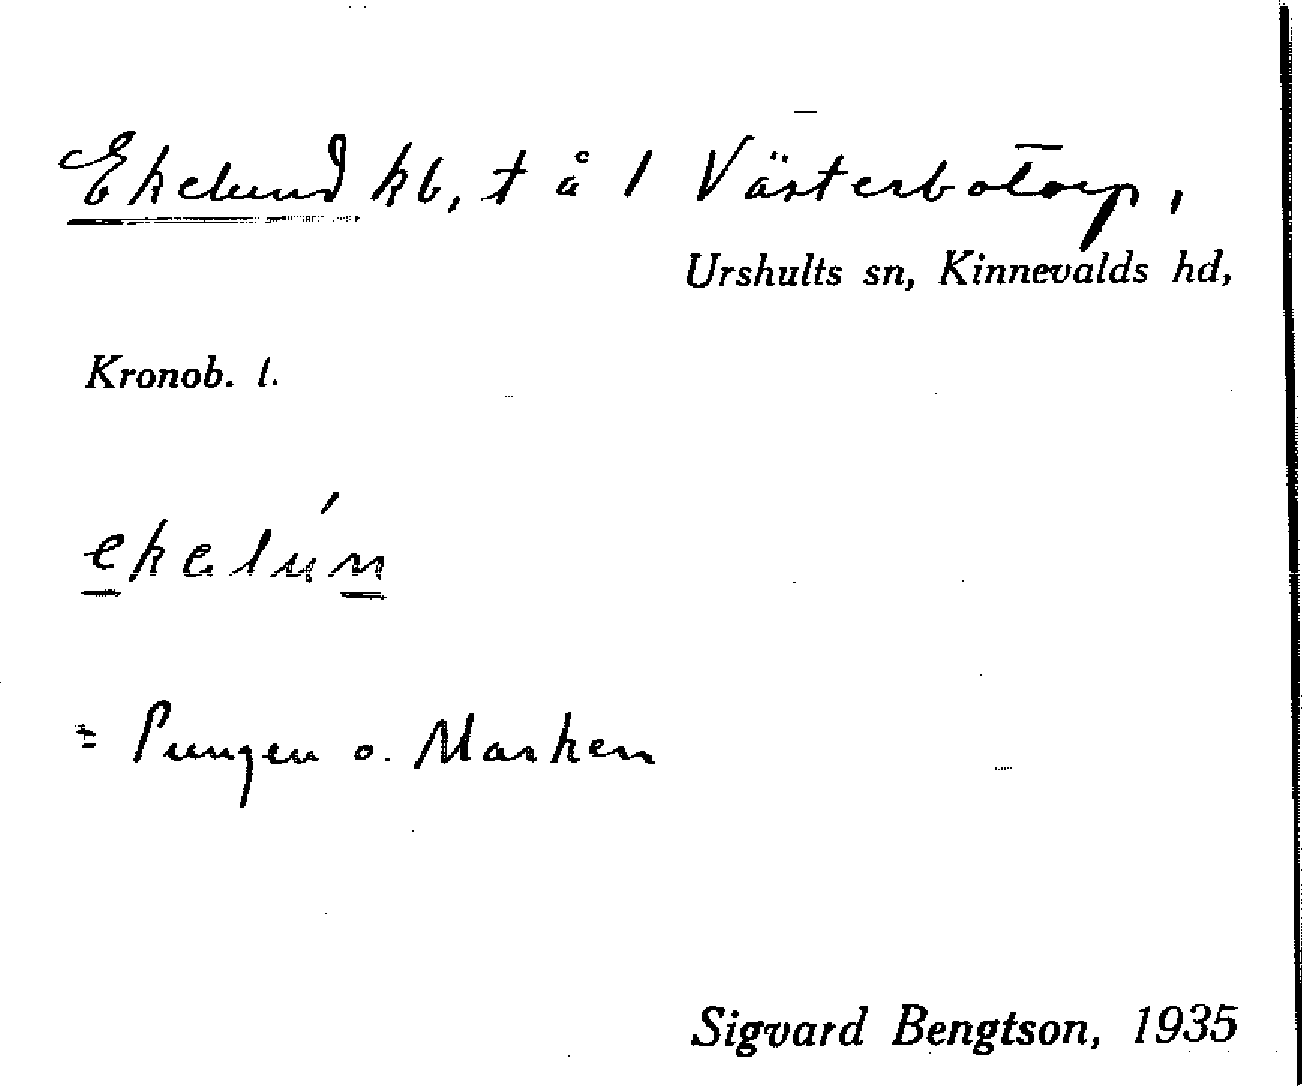 Ekelund kb, t å 1 Västerbotorp,
Urshults sn, Kinnevalds hd,
Kronob. l.
ekelún
= Pungen o. Marken
Sigvard Bengtson, 1935